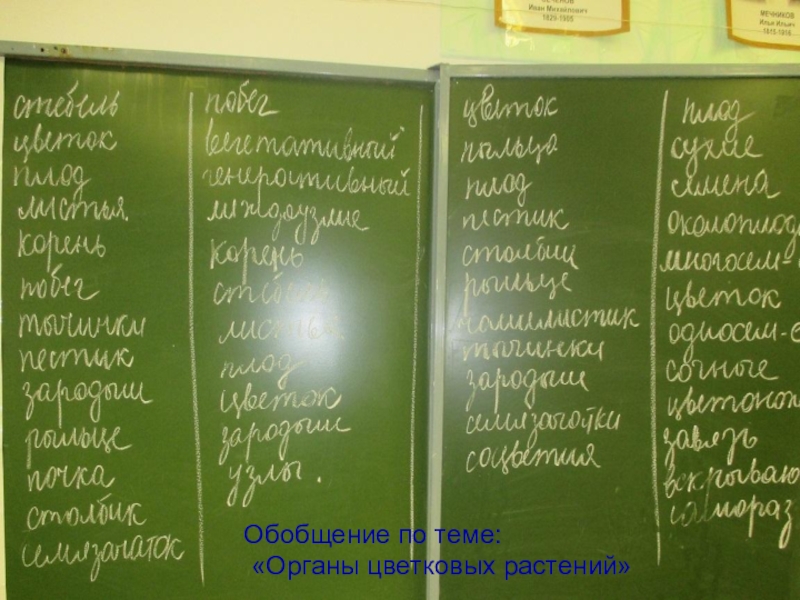 СЕЧЕНОВ
Иван Михайлович
1829-1905
МЕЧНИКОВ
Илья Ильич
стебель
цветок
плод
листья
корень
побег
тычинки
пестик
зародыш
рыльце
почка
столбик
семязачаток
побег
вегетативный
генеративный
междоузлие
корень
стебель
листья
плод
цветок
зародыш
узлы.
цветок
пыльца
плод
пестик
столбик
рыльце
чашелистик
тычинки
зародыш
семязачатки
соцветия
плод
сухие
семена
околоплод
многосем-
цветок
односем-е
сочные
цветонож
завязь
вскрываю
самораз
Обобщение по теме:
«Органы цветковых растений»